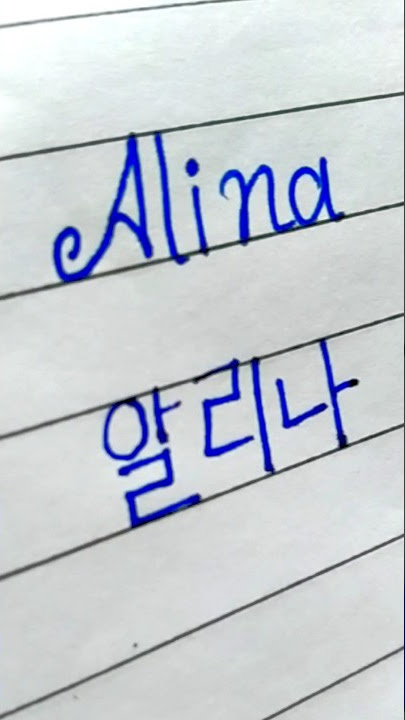 Alina
알리나